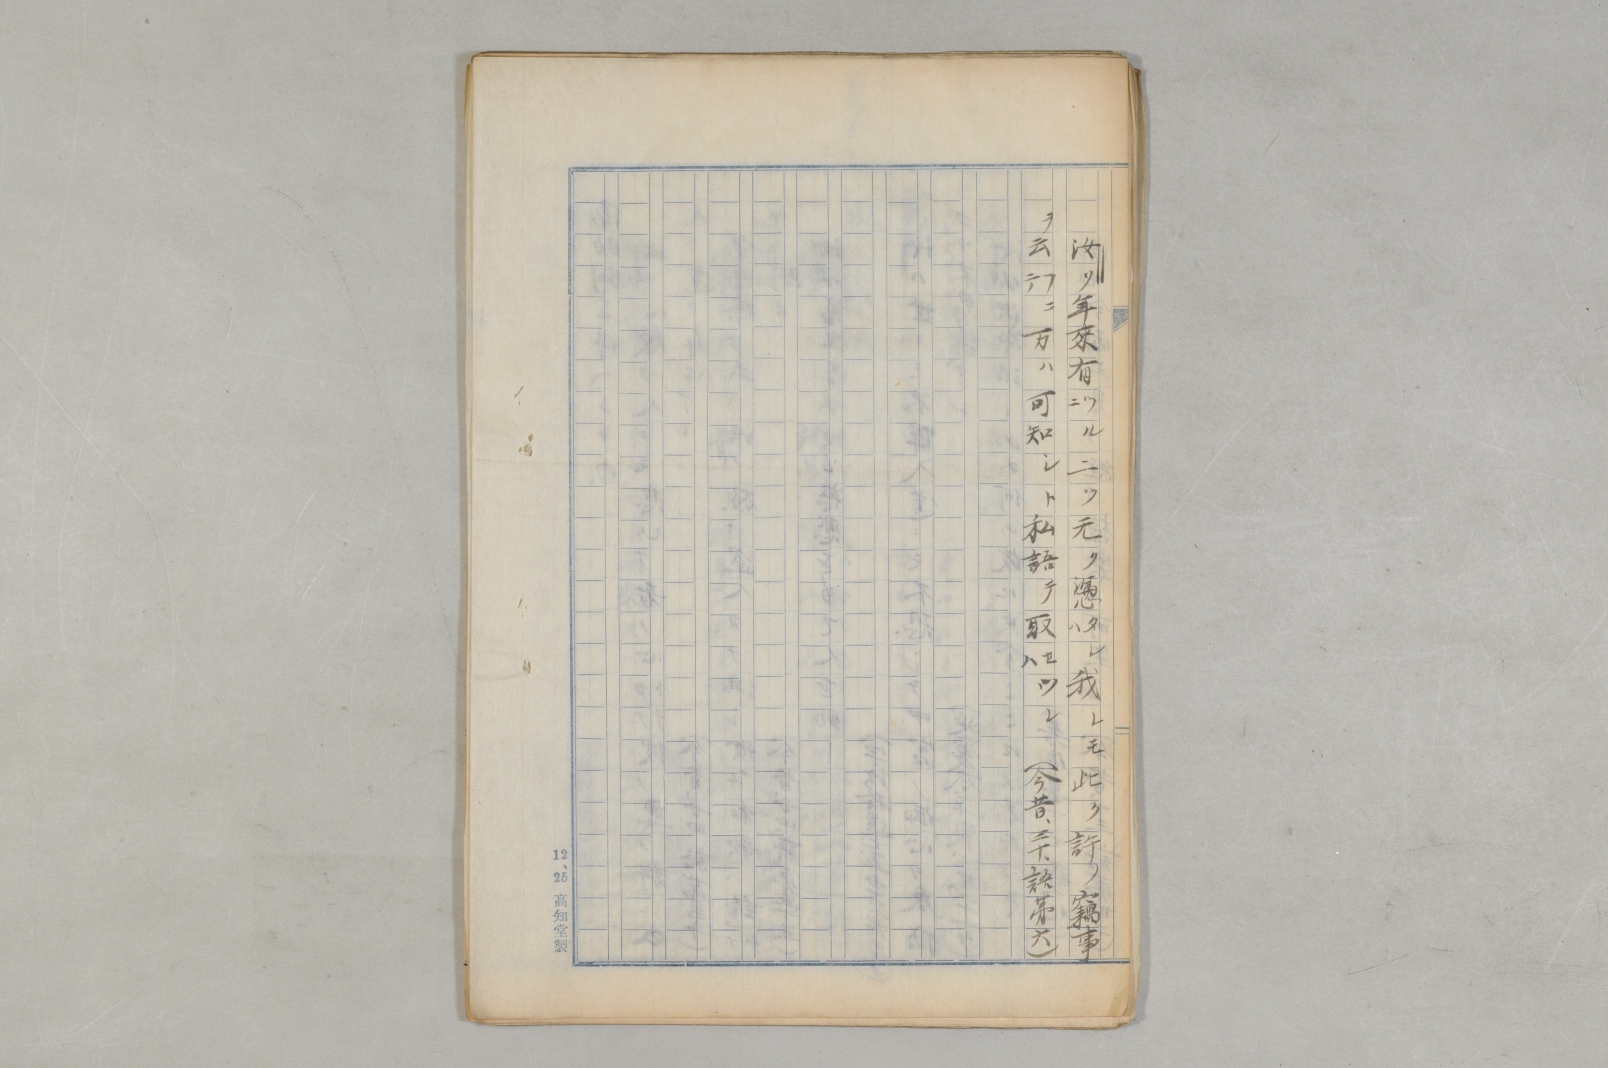 汝ツ年来有ニツル二ツ无ク憑ハタレ我レモ此ク許ノ竊事
ヲ云ニテフニ万ハ可知シト私語テ取ハセツレ（今昔、二十、語第六）
12、25 高知堂製